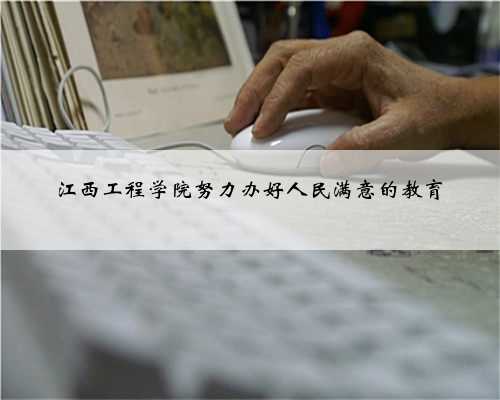 江西工程学院努力办好人民满意的教育